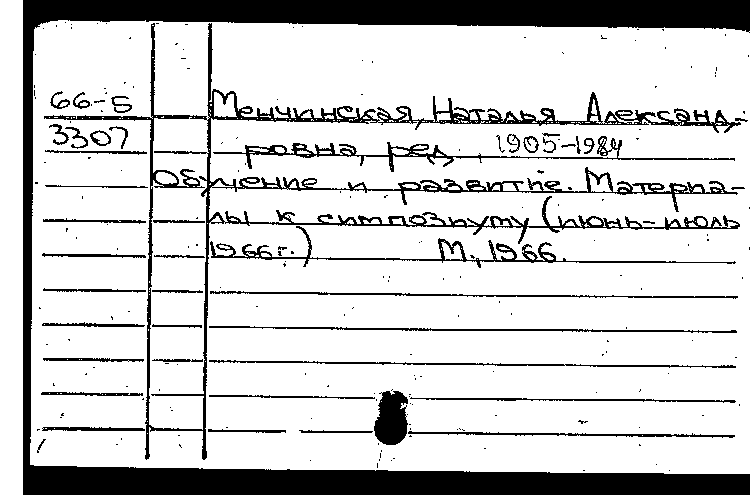 66-5 Менчинская, Наталья Александ-
3307 ровна, ред. 1905-1984
Обучение и развитие. Материа-
лы к симпозиуму (июнь-июль
1966г.) М., 1966.